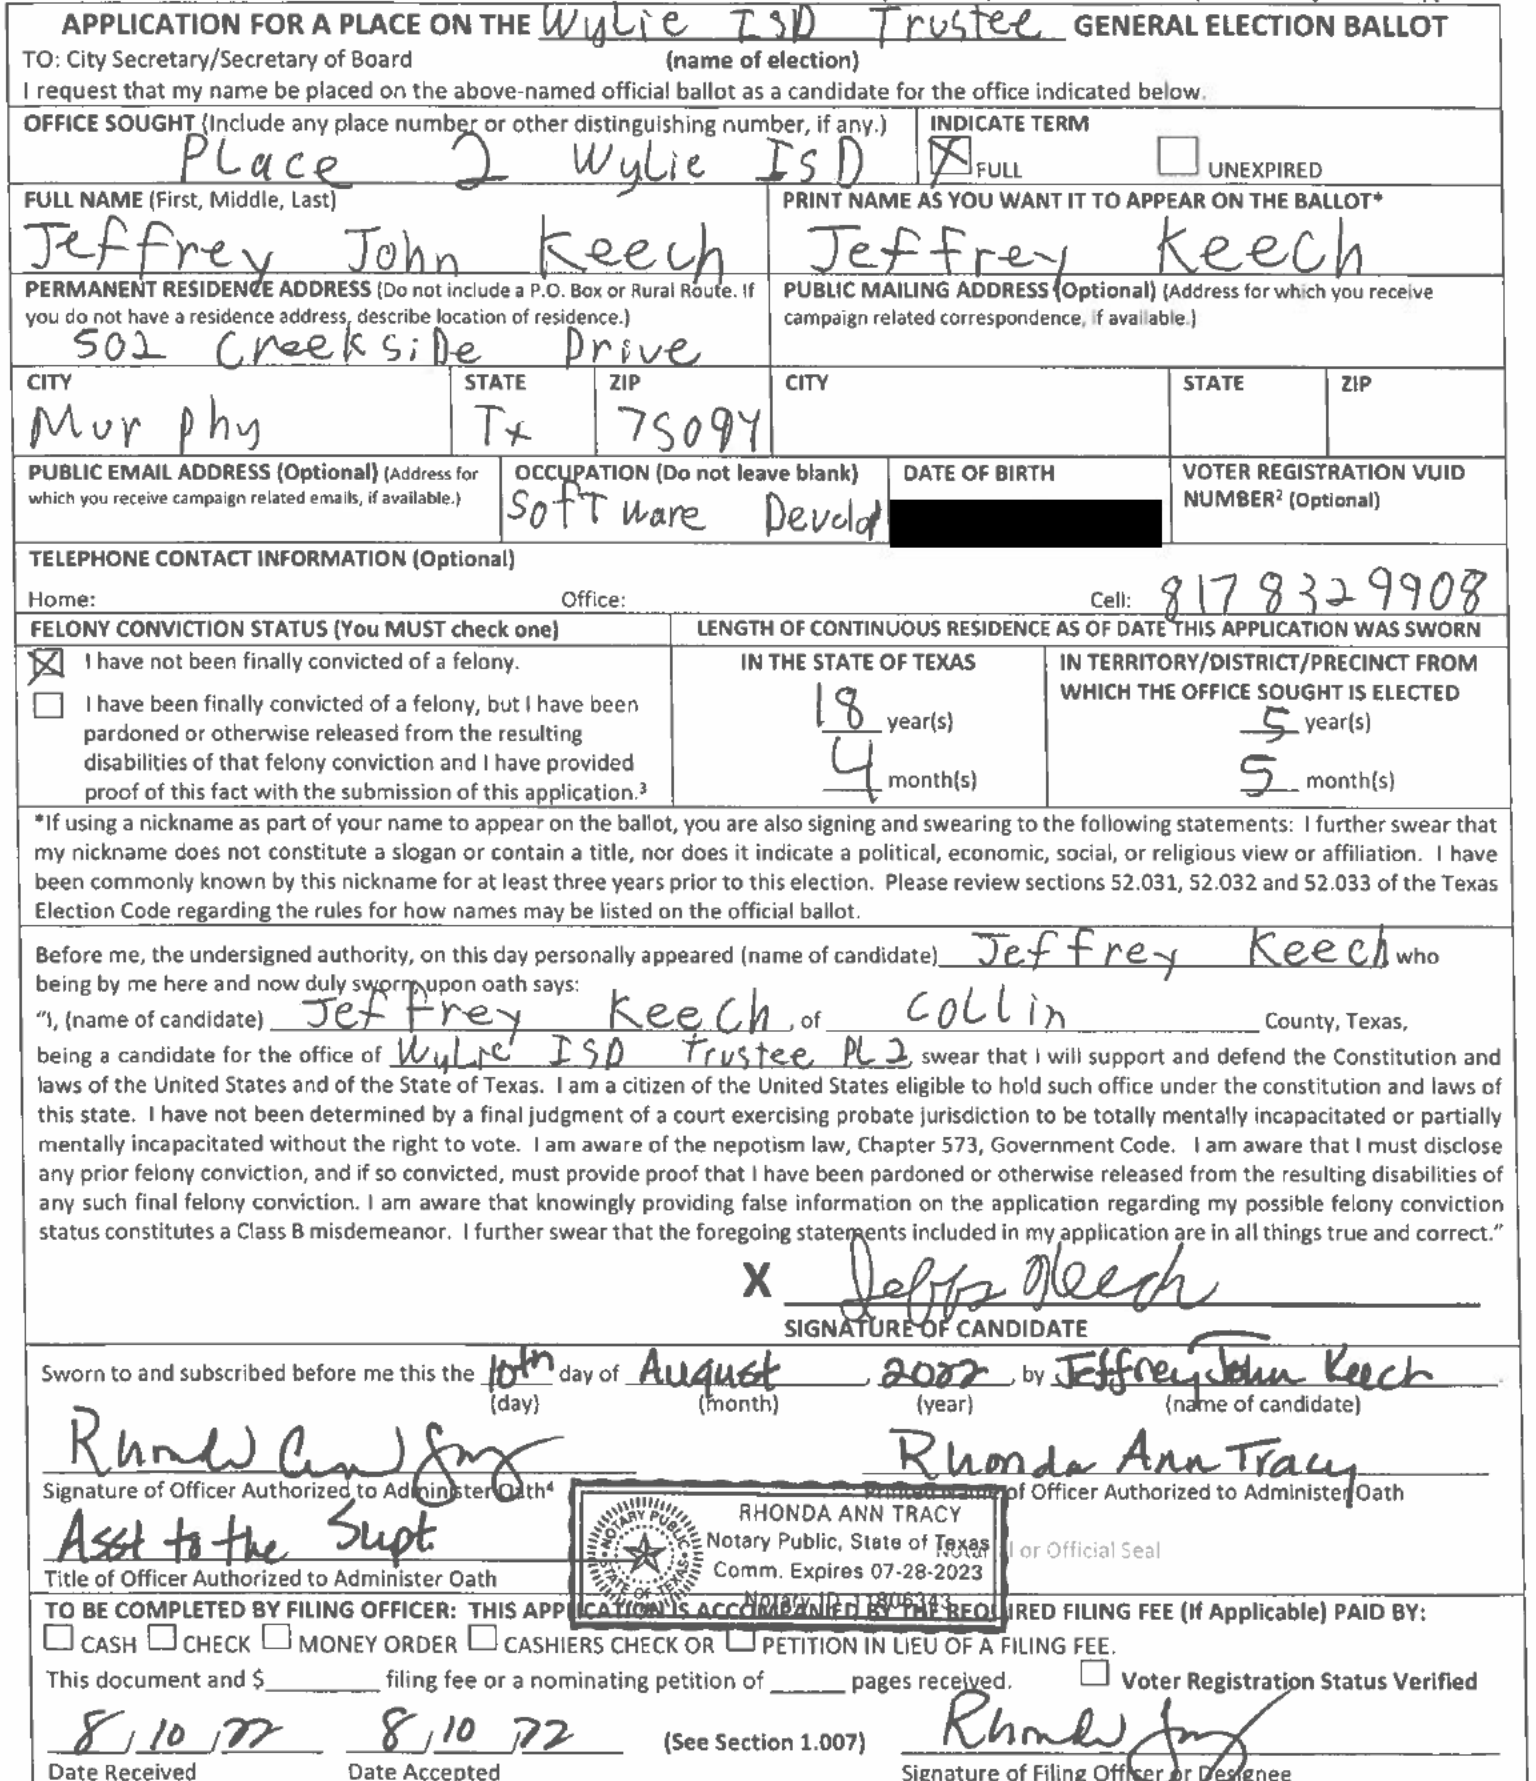 APPLICATION FOR A PLACE ON THE Wylie ISD Trustee GENERAL ELECTION BALLOT
TO: City Secretary/Secretary of Board (name of election)
I request that my name be placed on the above-named official ballot as a candidate for the office indicated below.
OFFICE SOUGHT (Include any place number or other distinguishing number, if any.) INDICATE TERM
Place 2 Wylie ISD X FULL UNEXPIRED
FULL NAME (First, Middle, Last) PRINT NAME AS YOU WANT IT TO APPEAR ON THE BALLOT*
Jeffrey John Keech Jeffrey Keech
PERMANENT RESIDENCE ADDRESS (Do not include a P.O. Box or Rural Route. If PUBLIC MAILING ADDRESS (Optional) (Address for which you receive
you do not have a residence address, describe location of residence.) campaign related correspondence, if available.)
502 Creekside Drive
CITY STATE ZIP CITY STATE ZIP
Murphy Tx 75094
PUBLIC EMAIL ADDRESS (Optional) (Address for OCCUPATION (Do not leave blank) DATE OF BIRTH VOTER REGISTRATION VUID
which you receive campaign related emails, if available.) Software Develo NUMBER² (Optional)
TELEPHONE CONTACT INFORMATION (Optional)
Home: Office: Cell: 817 832 9908
FELONY CONVICTION STATUS (You MUST check one) LENGTH OF CONTINUOUS RESIDENCE AS OF DATE THIS APPLICATION WAS SWORN
X I have not been finally convicted of a felony. IN THE STATE OF TEXAS IN TERRITORY/DISTRICT/PRECINCT FROM
I have been finally convicted of a felony, but I have been WHICH THE OFFICE SOUGHT IS ELECTED
pardoned or otherwise released from the resulting 18 year(s) 5 year(s)
disabilities of that felony conviction and I have provided
proof of this fact with the submission of this application.³ 4 month(s) 5 month(s)
*If using a nickname as part of your name to appear on the ballot, you are also signing and swearing to the following statements: I further swear that
my nickname does not constitute a slogan or contain a title, nor does it indicate a political, economic, social, or religious view or affiliation. I have
been commonly known by this nickname for at least three years prior to this election. Please review sections 52.031, 52.032 and 52.033 of the Texas
Election Code regarding the rules for how names may be listed on the official ballot.
Before me, the undersigned authority, on this day personally appeared (name of candidate) Jeffrey Keech who
being by me here and now duly sworn, upon oath says:
"I, (name of candidate) Jeffrey Keech, of Collin County, Texas,
being a candidate for the office of Wylie ISD Trustee PL 2, swear that I will support and defend the Constitution and
laws of the United States and of the State of Texas. I am a citizen of the United States eligible to hold such office under the constitution and laws of
this state. I have not been determined by a final judgment of a court exercising probate jurisdiction to be totally mentally incapacitated or partially
mentally incapacitated without the right to vote. I am aware of the nepotism law, Chapter 573, Government Code. I am aware that I must disclose
any prior felony conviction, and if so convicted, must provide proof that I have been pardoned or otherwise released from the resulting disabilities of
any such final felony conviction. I am aware that knowingly providing false information on the application regarding my possible felony conviction
status constitutes a Class B misdemeanor. I further swear that the foregoing statements included in my application are in all things true and correct."
X Jeffrey Keech
SIGNATURE OF CANDIDATE
Sworn to and subscribed before me this the 10th day of August, 2022, by Jeffrey John Keech.
(day) (month) (year) (name of candidate)
Rhonda Ann Tracy Rhonda Ann Tracy
Signature of Officer Authorized to Administer Oath⁴ Printed Name of Officer Authorized to Administer Oath
Asst to the Supt.
Title of Officer Authorized to Administer Oath
NOTARY PUBLIC STATE OF TEXAS
RHONDA ANN TRACY
Notary Public, State of Texas
Comm. Expires 07-28-2023
Notary ID 11806343
or Official Seal
TO BE COMPLETED BY FILING OFFICER: THIS APPLICATION IS ACCOMPANIED BY THE REQUIRED FILING FEE (If Applicable) PAID BY:
CASH CHECK MONEY ORDER CASHIERS CHECK OR PETITION IN LIEU OF A FILING FEE.
This document and $ filing fee or a nominating petition of pages received. Voter Registration Status Verified
8/10/22 8/10/22 (See Section 1.007) Rhonda Tracy
Date Received Date Accepted Signature of Filing Officer or Designee